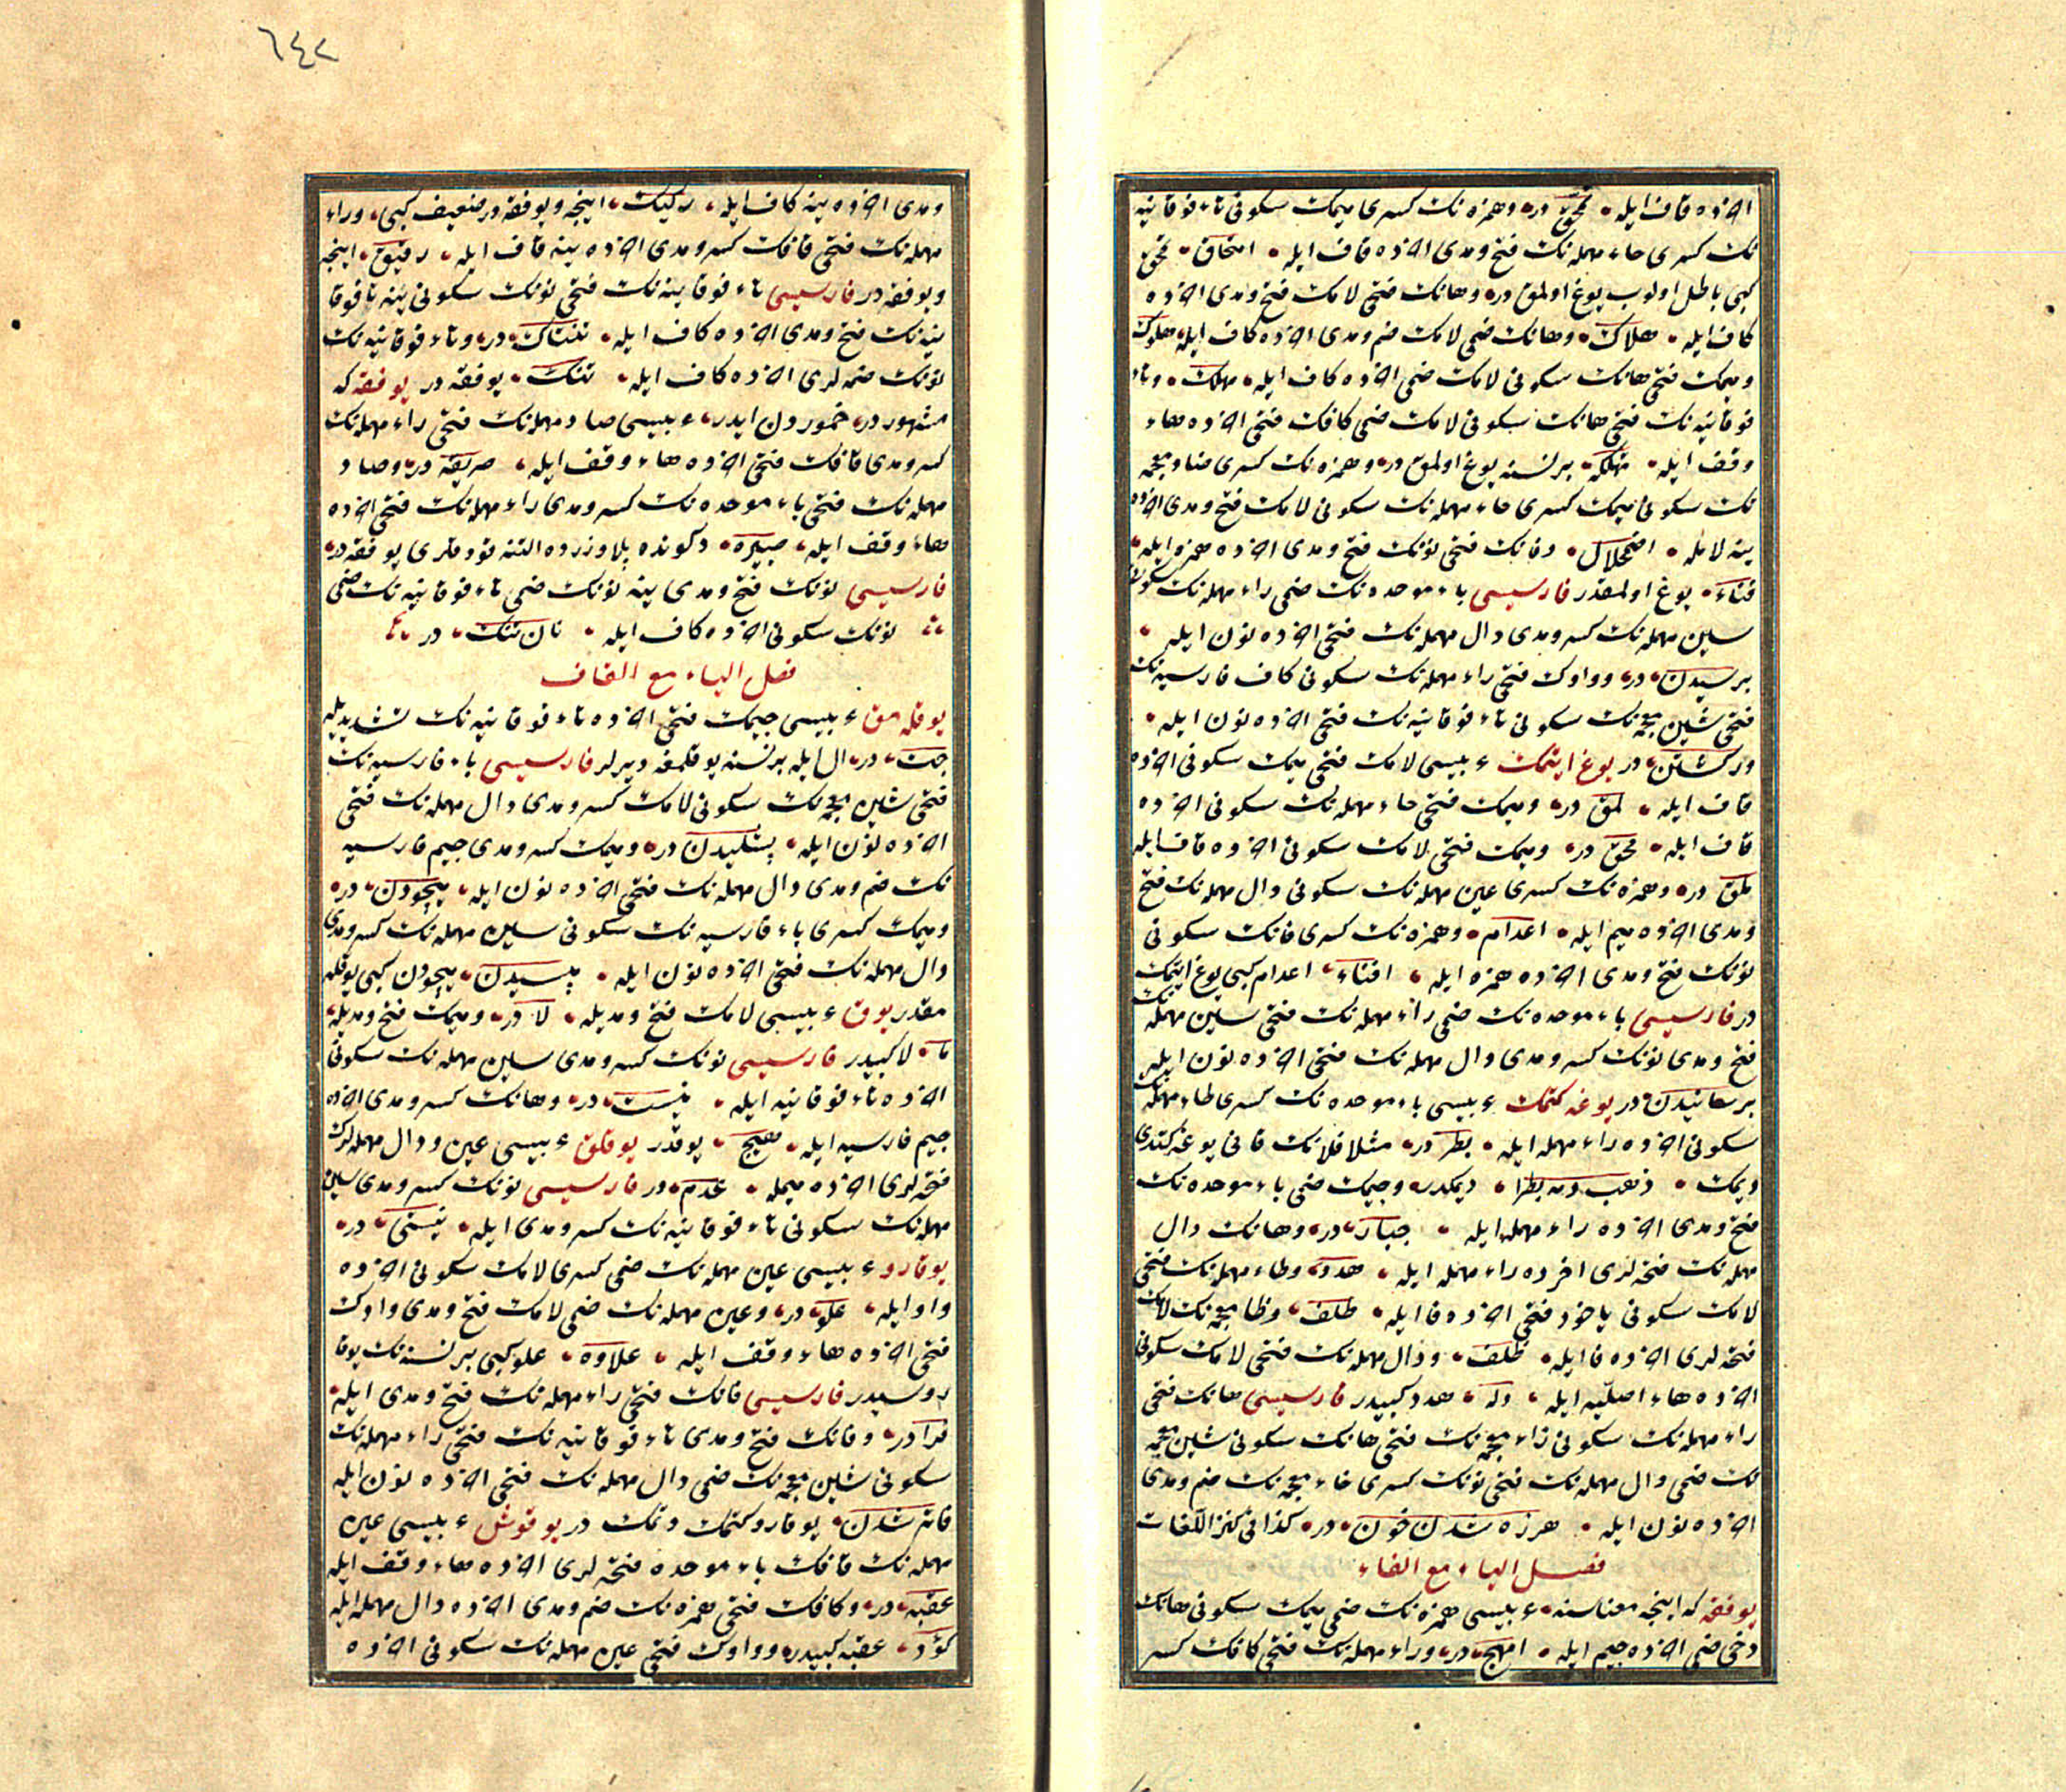 اخرده قاف ايله محق در وهمزه نك كسرى ميمك سكونى تاء فوقانيه
نك كسرى حاء مهمله نك فتح ومدى اخرده قاف ايله امتحاق محق
كبى باطل اولوب يوغ اولمق در وهانك فتحى لامك فتح ومدى اخرده
كاف ايله هلاك وهانك ضمى لامك ضم ومدى اخرده كاف ايله هلوك
وميمك فتحى هانك سكونى لامك ضمى اخرده كاف ايله مهلك وتاء
فوقانيه نك فتحى هانك سكونى لامك ضمى كافك فتحى اخرده هاء
وقف ايله تهلكه برنسنه يوغ اولمق در وهمزه نك كسرى ضاد معجمه
نك سكونى ميمك كسرى حاء مهمله نك سكونى لامك فتح ومدى اخرده
ينه لامله اضمحلال وفانك فتحى نونك فتح ومدى اخرده همزه ايله
فناء يوغ اولمقدر فارسيسى باء موحده نك ضمى راء مهمله نك سكونى
سين مهمله نك كسر ومدى دال مهمله نك فتحى اخرده نون ايله
برسيدن در وواوك فتحى راء مهمله نك سكونى كاف فارسيه نك
فتحى شين معجمه نك سكونى تاء فوقانيه نك فتحى اخرده نون ايله
وركشتن در يوغ ايتمك عربيسى لامك فتحى ميمك سكونى اخرده
قاف ايله لمق در وميمك فتحى حاء مهمله نك سكونى اخرده
قاف ايله محق در وميمك فتحى لامك سكونى اخرده قاف ايله
ملق در وهمزه نك كسرى عين مهمله نك سكونى دال مهمله نك فتح
ومدى اخرده ميم ايله اعدام وهمزه نك كسرى فانك سكونى
نونك فتح ومدى اخرده همزه ايله افناء اعدام كبى يوغ ايتمك
در فارسيسى باء موحده نك ضمى راء مهمله نك فتحى سين مهمله نك
فتح ومدى نونك كسر ومدى دال مهمله نك فتحى اخرده نون ايله
برسانيدن در يوغه كتمك عربيسى باء موحده نك كسرى طاء مهمله نك
سكونى اخرده راء مهمله ايله بطر در مثلا فلانك قانى يوغه كتدى
ديمك ذهب دمه بطرا ديمكدر وجيمك ضمى باء موحده نك
فتح ومدى اخرده راء مهمله ايله جبار در وهانك دال
مهمله نك فتحه لرى اخرده راء مهمله ايله هدر وطاء مهمله نك فتحى
لامك سكونى ياخود فتحى اخرده فا ايله طلف وظا معجمه نك لامك
فتحه لرى اخرده فا ايله ظلف ودال مهمله نك فتحى لامك سكونى
اخرده هاء اصليه ايله دله هدر كبيدر فارسيسى هانك فتحى
راء مهمله نك سكونى زاء معجمه نك فتحى هانك سكونى شين معجمه
نك ضمى دال مهمله نك فتحى نونك كسرى خاء معجمه نك ضم ومدى
اخرده نون ايله هرزه شدن خون در كذا فى كنز اللغات
فصل الياء مع الفاء
يوفقه كه اينجه معناسنه عربيسى همزه نك ضمى ميمك سكونى هانك
دخى ضمى اخرده جيم ايله امهج در وراء مهمله نك فتحى كافك كسر
٦٤٢
ومدى اخرده ينه كاف ايله ركيك اينجه ويوفقه در ضعيف كبى وراء
مهمله نك فتحى قافك كسر ومدى اخرده ينه قاف ايله رقيق اينجه
ويوفقه در فارسيسى تاء فوقانيه نك فتحى نونك سكونى ينه تا فوقا
نيه نك فتح ومدى اخرده كاف ايله تنتاك در وتاء فوقانيه نك
نونك ضمه لرى اخرده كاف ايله تنك يوفقه در يوفقه كه
مشهور در خموردن ايدر عربيسى صاد مهمله نك فتحى راء مهمله نك
كسر ومدى قافك فتحى اخرده هاء وقف ايله صريقه در وصاد
مهمله نك فتحى باء موحده نك كسر ومدى راء مهمله نك فتحى اخرده
هاء وقف ايله صبيره دكونده پلاو زرده التنه قودقلرى يوفقه در
فارسيسى نونك فتح ومدى ينه نونك ضمى تاء فوقانيه نك ضمى
نونك سكونى اخرده كاف ايله نان تنك در
فصل الياء مع القاف
يوقله مق عربيسى جيمك فتحى اخرده تاء فوقانيه نك تشديديله
جت در ال ايله برنسنه يوقلمغه ديرلر فارسيسى باء فارسيه نك
فتحى شين معجمه نك سكونى لامك كسر ومدى دال مهمله نك فتحى
اخرده نون ايله پشليدن در وميمك كسر ومدى جيم فارسيه
نك ضم ومدى دال مهمله نك فتحى اخرده نون ايله ميچودن در
وميمك كسرى باء فارسيه نك سكونى سين مهمله نك كسر ومدى
دال مهمله نك فتحى اخرده نون ايله مپسيدن ميچودن كبى يوقله
مقدر يوق عربيسى لامك فتح ومديله لا در وميمك فتح ومديله
ما لا كبيدر فارسيسى نونك كسر ومدى سين مهمله نك سكونى
اخرده تاء فوقانيه ايله نيست در وهانك كسر ومدى اخرده
جيم فارسيه ايله هيچ يوقدر يوقلق عربيسى عين ودال مهمله لرك
فتحه لرى اخرده ميمله عدم در فارسيسى نونك كسر ومدى سين
مهمله نك سكونى تاء فوقانيه نك كسر ومدى ايله نيستى در
يوقارو عربيسى عين مهمله نك ضمى كسرى لامك سكونى اخرده
واو ايله علو در وعين مهمله نك ضمى لامك فتح ومدى واوك
فتحى اخرده هاء وقف ايله علاوه علو كبى برنسنه نك يوقا
روسيدر فارسيسى فانك فتحى راء مهمله نك فتح ومدى ايله
فرا در وفانك فتح ومدى تاء فوقانيه نك فتحى راء مهمله نك
سكونى شين معجمه نك ضمى دال مهمله نك فتحى اخرده نون ايله
فاتر شدن يوقارو كتمك دمك در يوقوش عربيسى عين
مهمله نك قافك باء موحده فتحه لرى اخرده هاء وقف ايله
عقبه در وكافك فتحى همزه نك ضم ومدى اخرده دال مهمله ايله
كؤد عقبه كبيدر وواوك فتحى عين مهمله نك سكونى اخرده